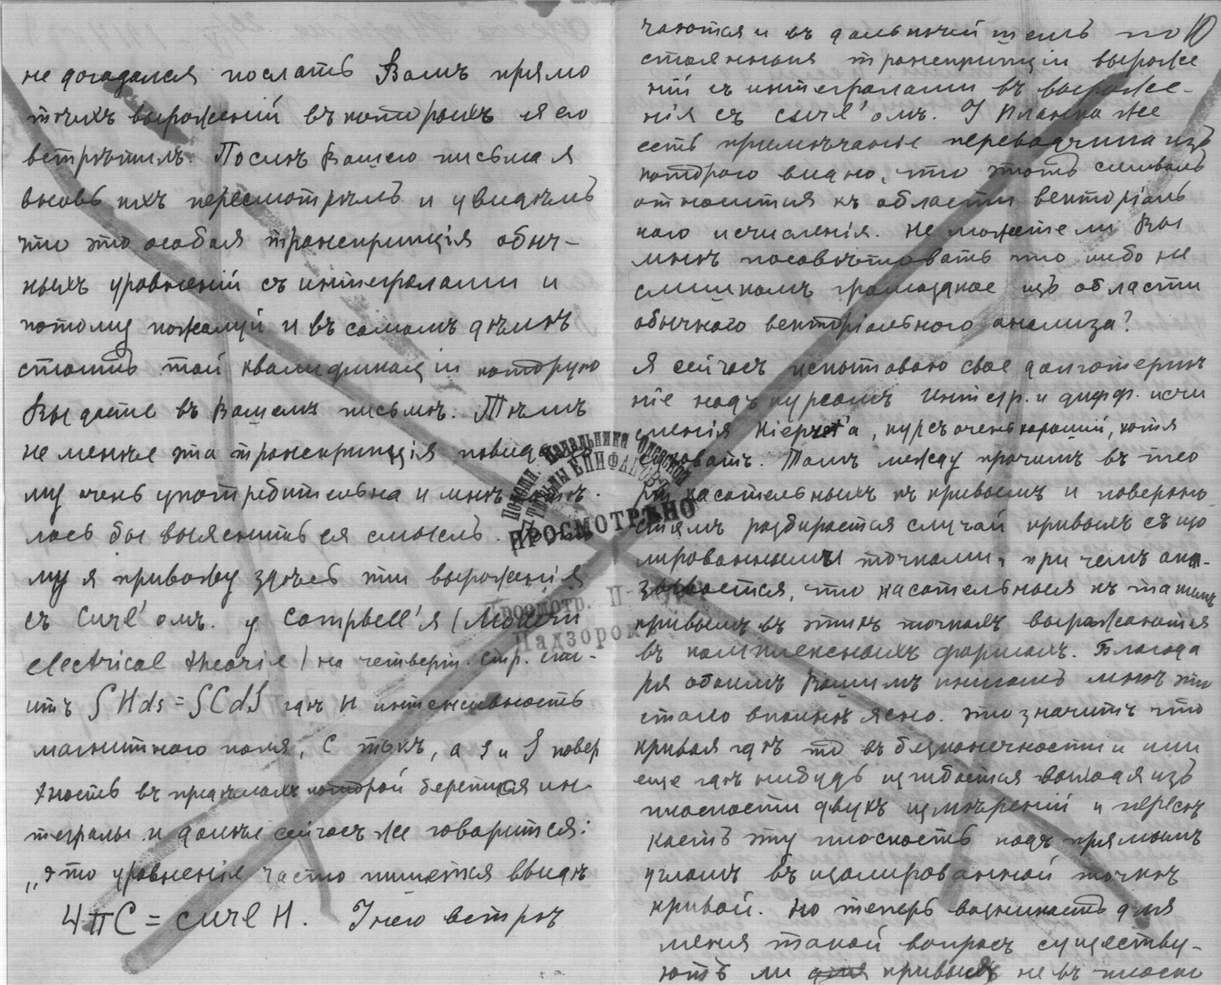 не догадался послать Вамъ прямо
тѣхъ выраженій въ которыхъ я его
встрѣтилъ. Послѣ Вашего письма я
вновь ихъ пересмотрѣлъ и увидѣлъ
что это особая транскрипція обыч-
ныхъ уравненій съ интегралами и
потому пожалуй и въ самомъ дѣлѣ
стоитъ той квалификаціи которую
Вы даете въ Вашемъ письмѣ. Тѣмъ
не менѣе эта транскрипція повиди
му очень употребительна и мнѣ
лось бы выяснить ея смыслъ.
му я привожу здѣсь эти выраженія
съ Curl'омъ. У Campbell'я (Modern
electrical theorie) на четверт. стр. сто-
итъ ∫Hds = ∫CdS гдѣ H интенсивность
магнитнаго поля, C токъ, а s и S повер
хность въ предѣлахъ которой берется ин-
тегралы и дальше сейчасъ же говорится:
„это уравненіе часто пишется ввидѣ
4πC = curl H. У него встрѣ
10
чаются и въ дальнѣйшемъ по
стоянныя транскрипціи выраже
ній съ интегралами въ выраже-
нія съ curl'омъ. У Планка же
есть примѣчаніе переводчика изъ
котораго видно, что этотъ символъ
относится къ области векторіаль
наго исчисленія. Не можете ли Вы
мнѣ посовѣтовать что либо не
слишкомъ громоздкое изъ области
обычнаго векторіальнаго анализа?
Я сейчасъ испытываю свое долготерпѣ
ніе надъ курсомъ Интегр. и дифф. исчи
сленія, курсъ очень хорошій, хотя
Тамъ между прочимъ въ тео
ріи касательныхъ къ кривымъ и поверхно
стямъ разбирается случай кривыхъ съ изо
лированными точками, при чемъ ока-
зывается, что касательныя къ такимъ
кривымъ въ этихъ точкахъ выражаются
въ комплексныхъ формахъ. Благода
ря обоимъ Вашимъ книгамъ мнѣ это
стало вполнѣ ясно. Это значитъ что
кривая гдѣ то въ безконечности или
еще гдѣ нибудь изгибается выходя изъ
плоскости двухъ измѣреній и пересѣ
каетъ эту плоскость подъ прямымъ
угломъ въ изолированной точкѣ
кривой. Но теперь возникаетъ для
меня такой вопросъ существу-
ютъ ли кривыя не въ плоско
Помощн. Начальника Одесской
Тюрьмы ЕПИФАНОВЪ
ПРОСМОТРѢНО
Просмотр.
Надзором